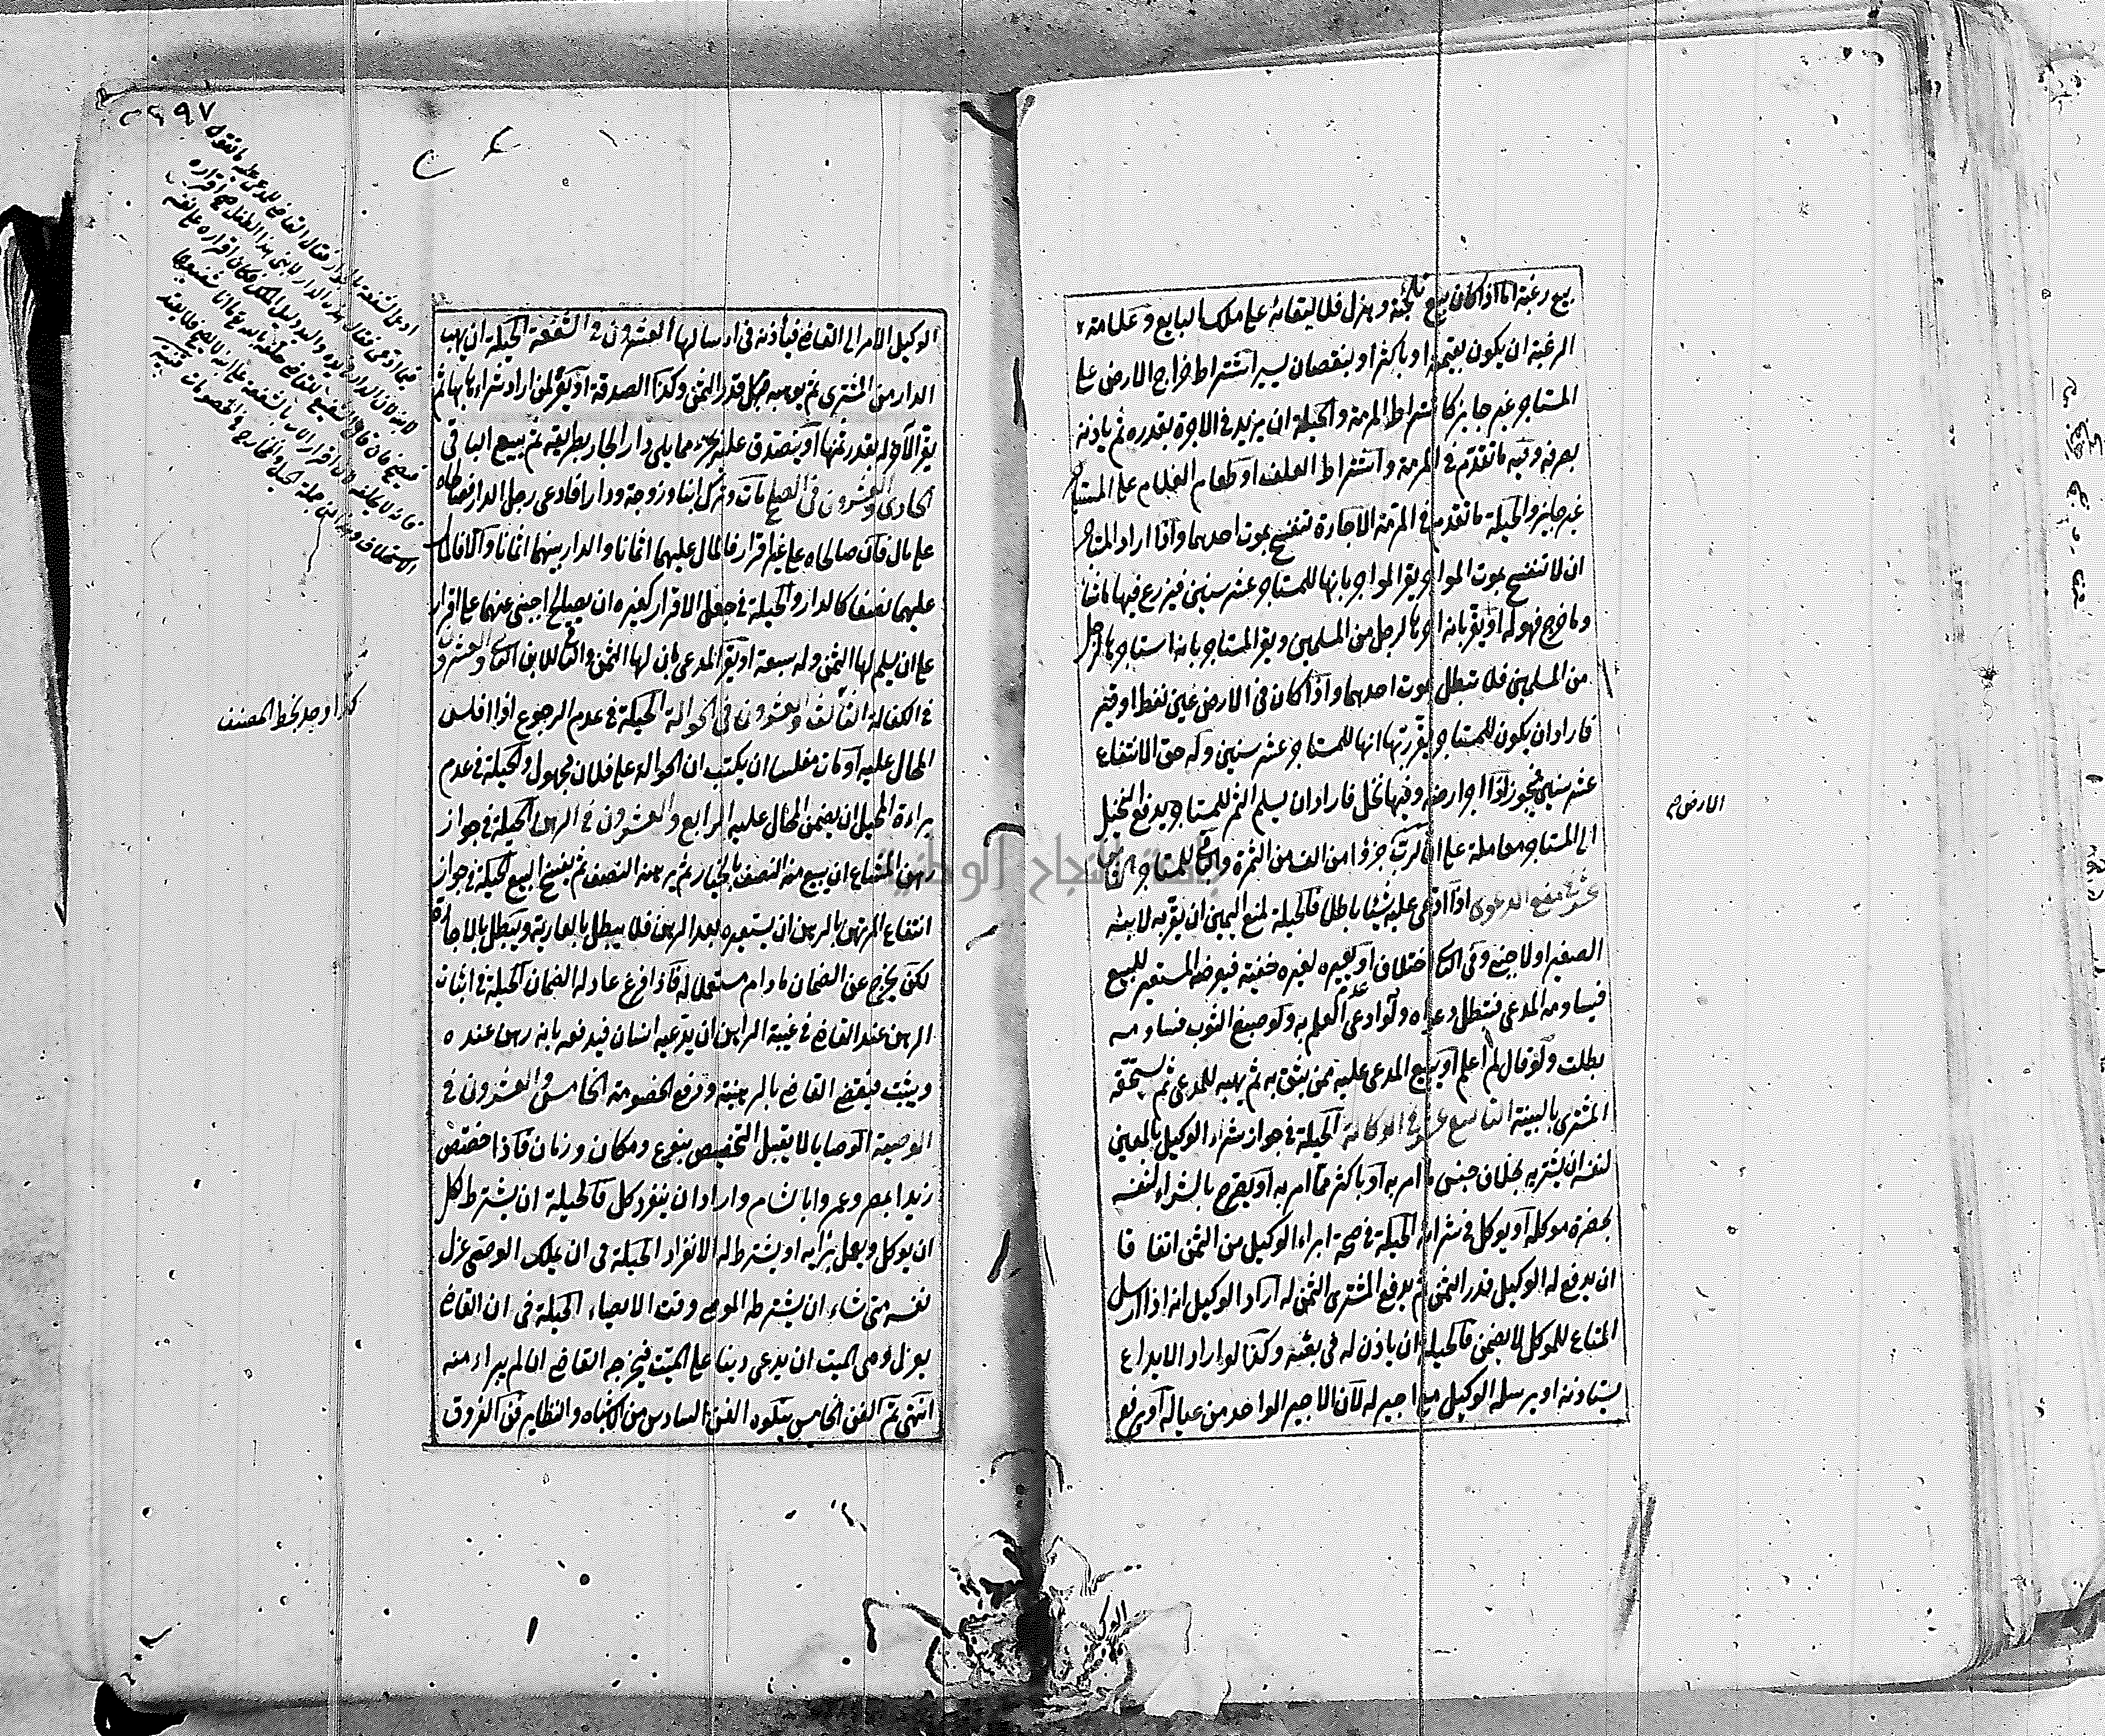 بيع رغبة اما اذا كان بيع تلجئة وهزل فلا لبقائه على ملك البايع وعلامة
الرغبة ان يكون بقيمتها او باكثر او بنقصان يسير اشتراط خراج الارض على
المستاجر غير جايز كاشتراط المرمة والحيلة ان يزيد في الاجرة بقدره ثم ياذنه
بصرفه وفيه ما تقدم في المرمة واشتراط العلف او طعام الغلام على المستاجر
غير جايز والحيلة ما تقدم في المرمة الاجارة تنفسخ بموت احدهما واذا اراد المستاجر
ان لا تنفسخ بموت المواجر يقر المواجر بانها للمستاجر عشر سنين فيزرع فيها ما شا
وما خرج فهو له او يقر بانه اجرها لرجل من المسلمين ويقر المستاجر بانه استاجرها لرجل
من المسلمين فلا تبطل بموت احدهما واذا كان في الارض عين نفط او قير
فاراد ان يكون للمستاجر يقر ربها انها للمستاجر عشر سنين وله حق الانتفاع
عشر سنين فيجوز اذا اجر ارضه وفيها نخل فاراد ان يسلم الثمر للمستاجر يدفع النخيل
الى المستاجر معاملة على ان لرب جزؤا من الف من الثمرة والباقي للمستاجر
عشر في منع الدعوى اذا ادعى عليه شيئا باطلا فالحيلة لمنع اليمين ان يقر به لابنه
الصغير او لاجنبي وفي الثاني اختلاف او يعيره لغيره خفية فيعرضه المستعير للبيع
فيساومه المدعي فتبطل دعواه ولو ادعى عدم العلم به ولو صبغ الثوب فساومه
بطلت ولو قال لم اعلم او يبيع المدعى عليه ممن يثق به ثم يهبه للمدعي ثم يستحقه
المشتري بالبينة التاسع عشر في الوكالة الحيلة في جواز شراء الوكيل بالمعين
لنفسه ان يشتريه بخلاف جنس ما امر به او باكثر مما امر به او يصرح بالشراء لنفسه
بحضرة موكله او يوكل في شرائه الحيلة في صحة ابراء الوكيل من الثمن اتفاقا
ان يدفع له الوكيل قدر الثمن ثم يدفع المشتري الثمن له اراد الوكيل انه اذا ارسل
المتاع للموكل لا يضمن فالحيلة ان ياذن له في بعثه وكذا لو اراد الايداع
يستاذنه او يرسله الوكيل مع اجير له لان الاجير الواحد من عياله او يرفع
الوكيل
الارض
الوكيل الامر الى القاضي فيأذنه في ارسالها العشرون في الشفعة الحيلة ان يهب
الدار من المشتري ثم يوهبه قدر الثمن وكذا الصدقة او يقر لمن اراد شراءها بها ثم
يقر الاخر له بقدر ثمنها او يتصدق عليه بجزء مما يلي دار الجار بطريقه ثم يبيع الباقي
الحادي والعشرون في الصلح مات وترك ابنا وزوجة ودارا فادعى رجل الدار فصالحاه
على مال فان صالحاه على غير اقرار فالمال عليهما اثمانا والدار بينهما اثمانا والا فالمال
عليهما نصفا كالدار والحيلة في جعل الاقرار كغيره ان يصالح اجنبي عنهما على اقرار
على ان يسلم لها الثمن وله سبعة او يقر المدعي بان لها الثمن والباقي للابن الثاني والعشرون
في الكفالة الثالث والعشرون في الحوالة الحيلة في عدم الرجوع اذا افلس
المحال عليه او مات مفلسا ان يكتب ان الحوالة على فلان مجهول والحيلة في عدم
براءة المحيل ان يضمن المحال عليه الرابع والعشرون في الرهن الحيلة في جواز
رهن المشاع ان يبيع منه النصف بالخيار ثم يرهنه النصف ثم يفسخ البيع الحيلة في جواز
انتفاع المرتهن بالرهن ان يستعيره بعد الرهن فلا يبطل بالعارية ويبطل بالاجارة
لكن يخرج عن الضمان ما دام مستعملا له فاذا فرغ عاد له الضمان الحيلة في اثبات
الرهن عند القاضي في غيبة الراهن ان يدعيه انسان فيدفعه بانه رهن عنده
ويثبت فيقضي القاضي بالرهنية ودفع الخصومة الخامس والعشرون في
الوصية الوصايا لا يقبل التخصيص بنوع ومكان وزمان فاذا خصص
زيدا بمصر وعمروا بالشام واراد ان ينفرد كل فالحيلة ان يشترط لكل
ان يوكل ويعمل برايه او يشترط له الانفراد الحيلة في ان يملك الوصي عزل
نفسه متى شاء ان يشترطه الموصي وقت الايصاء الحيلة في ان القاضي
يعزل وصي الميت ان يدعي دينا على الميت فيخرجه القاضي ان لم يبراء منه
انتهى تم الفن الخامس يتلوه الفن السادس من الاشباه والنظاير فن الفروق
٢٩٧
ادعى الشفعة بالجوار فقال القاضي للمدعى عليه ما تقول
فيما ادعى فقال هذه الدار لابني هذا الطفل صح اقراره
كذا وجد بخط المصنف
جامعة النجاح الوطنية